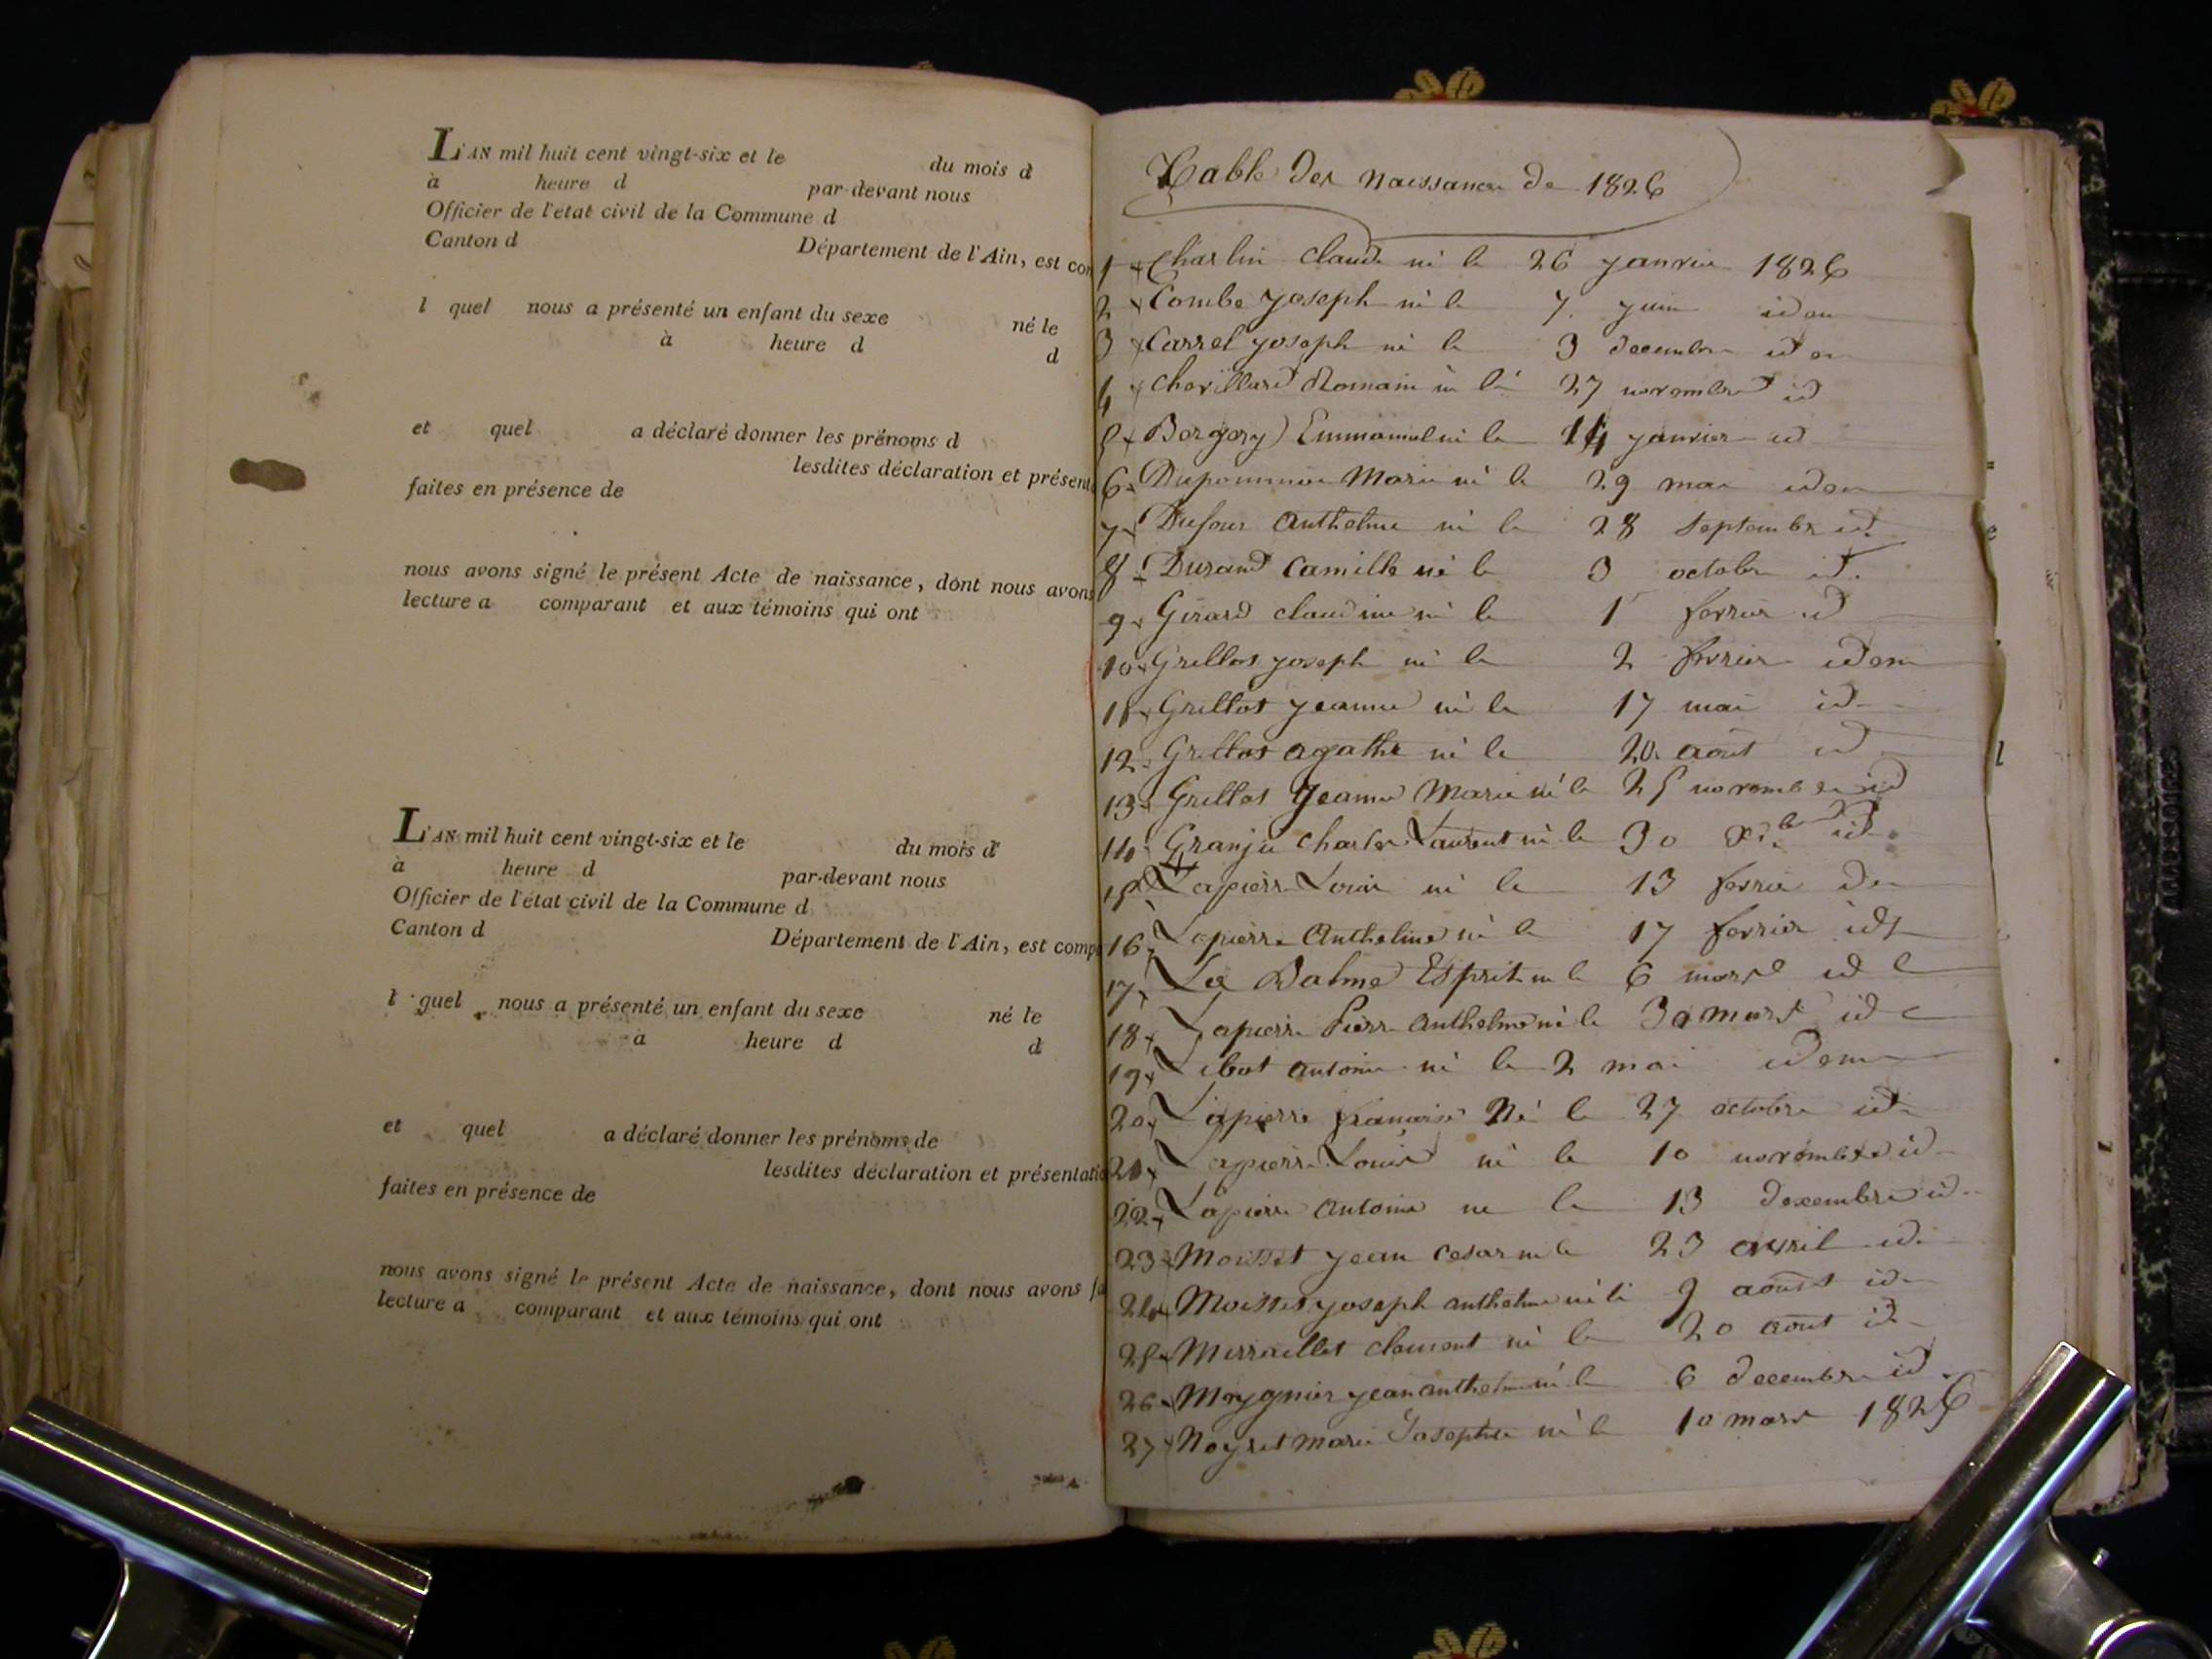 L'AN mil huit cent vingt-six et le du mois d
à heure d par-devant nous
Officier de l'état civil de la Commune d
Canton d Département de l'Ain, est com
l quel nous a présenté un enfant du sexe né le
à heure d d
et quel a déclaré donner les prénoms d
lesdites déclaration et présent
faites en présence de
nous avons signé le présent Acte de naissance, dont nous avons
lecture a comparant et aux témoins qui ont
L'AN mil huit cent vingt-six et le du mois d
à heure d par-devant nous
Officier de l'état civil de la Commune d
Canton d Département de l'Ain, est comp
l quel nous a présenté un enfant du sexe né le
à heure d d
et quel a déclaré donner les prénoms de
lesdites déclaration et présentatio
faites en présence de
nous avons signé le présent Acte de naissance, dont nous avons fa
lecture a comparant et aux témoins qui ont
Table des naissances de 1826
1 Charlin claude né le 26 janvier 1826
2 Combe joseph né le 7 juin idem
3 Carrel joseph né le 3 decembre idem
4 chevillard Romain né le 27 novembre id
5 Emmanuel né le 14 janvier id
6 Marie né le 29 mai idem
7 Dufour anthelme né le 28 septembre id.
8 Durand Camille né le 3 octobre id.
9 Girard claudine né le 1 fevrier id
10 Grillot joseph né le 2 fevrier idem
11 Grillot jeanne né le 17 mai id
12 Grillot agathe né le 20 août id
13 Grillot jeanne Marie né le 25 novembre id
14 Granju charles Laurent né le 30 id.
15 Lapierre Louis né le 13 fevrier
16 Lapierre Anthelme né le 17 fevrier id
17 La Balme Esprit né le 6 mars id
18 Lapierre Pierre Anthelme né le 30 mars id
19 antoine né le 2 mai idem
20 Lapierre francoise Né le 27 octobre id.
21 Lapierre Louis né le 10 novembre id
22 Lapierre Antoine ne le 13 decembre id.
23 Moisset jean cesar né le 23 avril id.
24 Moisset joseph anthelme né le 9 août id.
25 Merraillet clement né le 20 août id.
26 Meygnier jean anthelme né le 6 decembre id.
27 Neyret marie Josephte né le 10 mars 1826